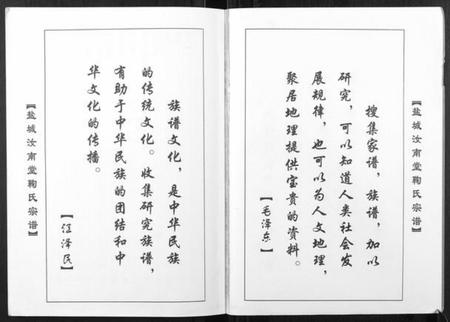 【盐城汝南堂鞠氏宗谱】
搜集家谱，族谱，加以
研究，可以知道人类社会发
展规律，也可以为人文地理，
聚居地理提供宝贵的资料。
【毛泽东】
族谱文化，是中华民族
的传统文化。收集研究族谱，
有助于中华民族的团结和中
华文化的传播。
【江泽民】
【盐城汝南堂鞠氏宗谱】